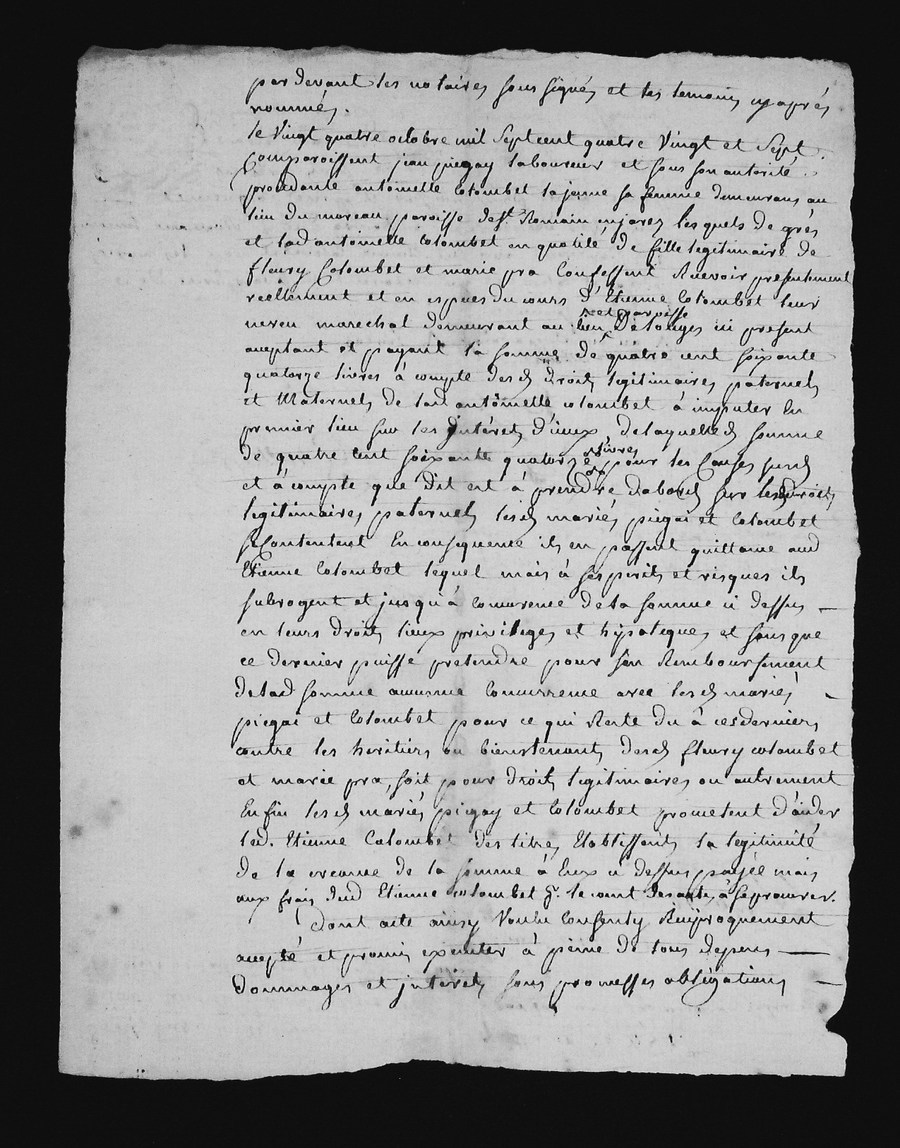 par devant les notaires sous signés et les temoins cy après
nommés.
le vingt quatre octobre mil sept cent quatre vingt et sept
comparoissent jean piegay laboureur et sous son autorité
procedante antoinette Colombet la jeune sa femme demeurans au
lieu du mureau paroisse de St. Romain en jarez lesquels de grès
et lad antoinette Colombet en qualité de fille legitimaire de
fleury Colombet et marie pra Confessent Recevoir presentement
reellement et en especes du cours d'Etienne Colombet leur
neveu marechal demeurant au lieu
et paroisse
De longes ici present
aceptant et payant la somme de quatre cent soixante
quatorze livres à compte desd Droits legitimaires paternels
et Maternels de lad antoinette Colombet à imputer En
premier lieu sur les jntérets d'iceux de laquelle d somme
de quatre cent soixante quatorze
livres
pour les Causes susd
et à compte que dit est à prendre dabord sur lesd Droits
legitimaires paternels lesd mariés piegai et Colombet
se Contentent En consequence ils en passent quittance aud
Etienne Colombet lequel mais à ses perils et risques ils
subrogent et jusqu'à concurence de la somme ci dessus
en leurs droits lieux privileges et hypoteques et sans que
ce dernier puisse pretendre pour son Remboursement
de lad somme aucunne Concurrence avec lesd mariés
piegai et Colombet pour ce qui Reste du à ces derniers
contre les heritiers ou bienstenants desd fleury Colombet
et marie pra, soit pour droits legitimaires ou autrement
Enfin lesd mariés piegay et Colombet prometent d'aider
led. Etienne Colombet des titres Etablissants la legitimité
de la creance de la somme à Eux ci dessus payée mais
aux frais dud Etienne Colombet le cont à se prouver.
Dont acte ainsy Voulu Consenty Reciproquement
accepté et promis executer à peine de tous depens
Dommages et jnterets sous promesses obligations